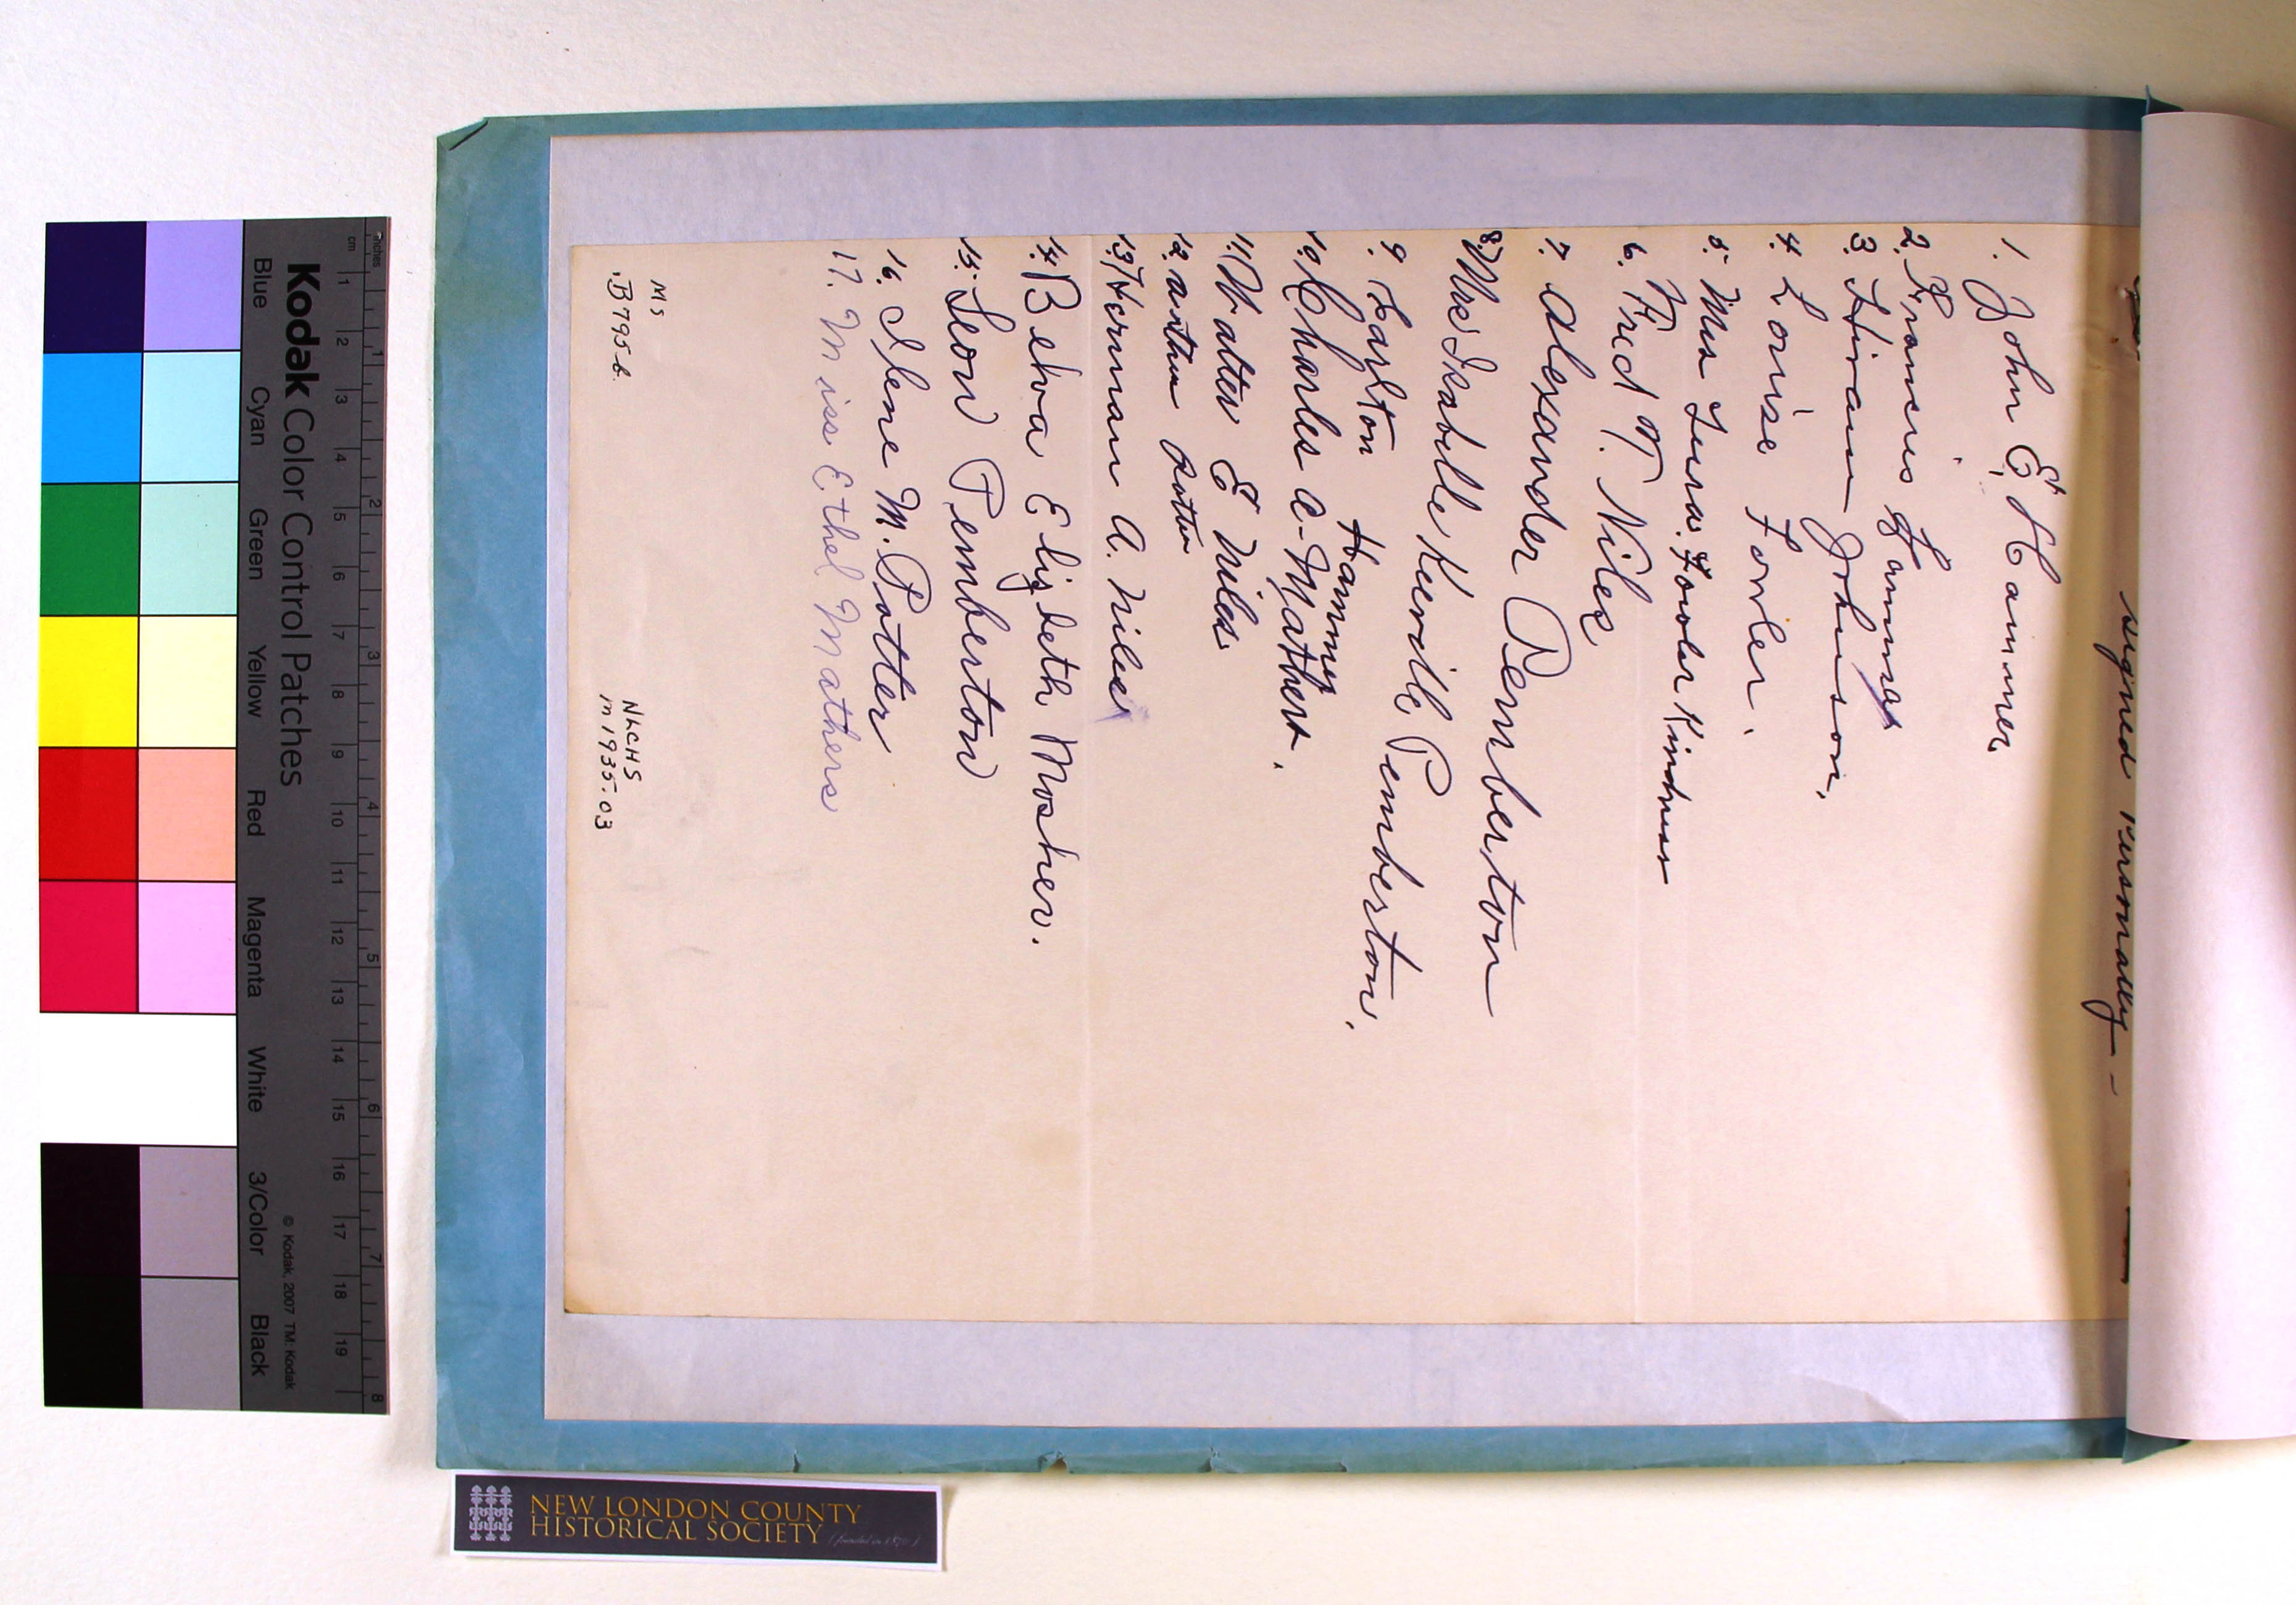 signed personally -
1. John E. Hammer
2. Francis Hammer
3. Hiram Johnson.
4. Louise Fowler.
5. Mrs Lena Fowler Kindness
6. Fred W. Niles
7. Alexander Pemberton
8. Mrs Isabelle Keeville Pemberton.
9. Carlton Hammer
10. Charles A. Mathers.
11. Walter E Niles.
12. Arthur Potter
13. Herman A. Niles
14. Behva Elizbeth Mosher.
15. Leon Pemberton
16. Ilene M. Potter
17. Miss Ethel Mathers
Ms
.B795b.
NLCHS
in 1935.03
Kodak Color Control Patches
© Kodak, 2007 TM: Kodak
Blue Cyan Green Yellow Red Magenta White 3/Color Black
inches 1 2 3 4 5 6 7 8
cm 1 2 3 4 5 6 7 8 9 10 11 12 13 14 15 16 17 18 19
NEW LONDON COUNTY
HISTORICAL SOCIETY (founded in 1870)